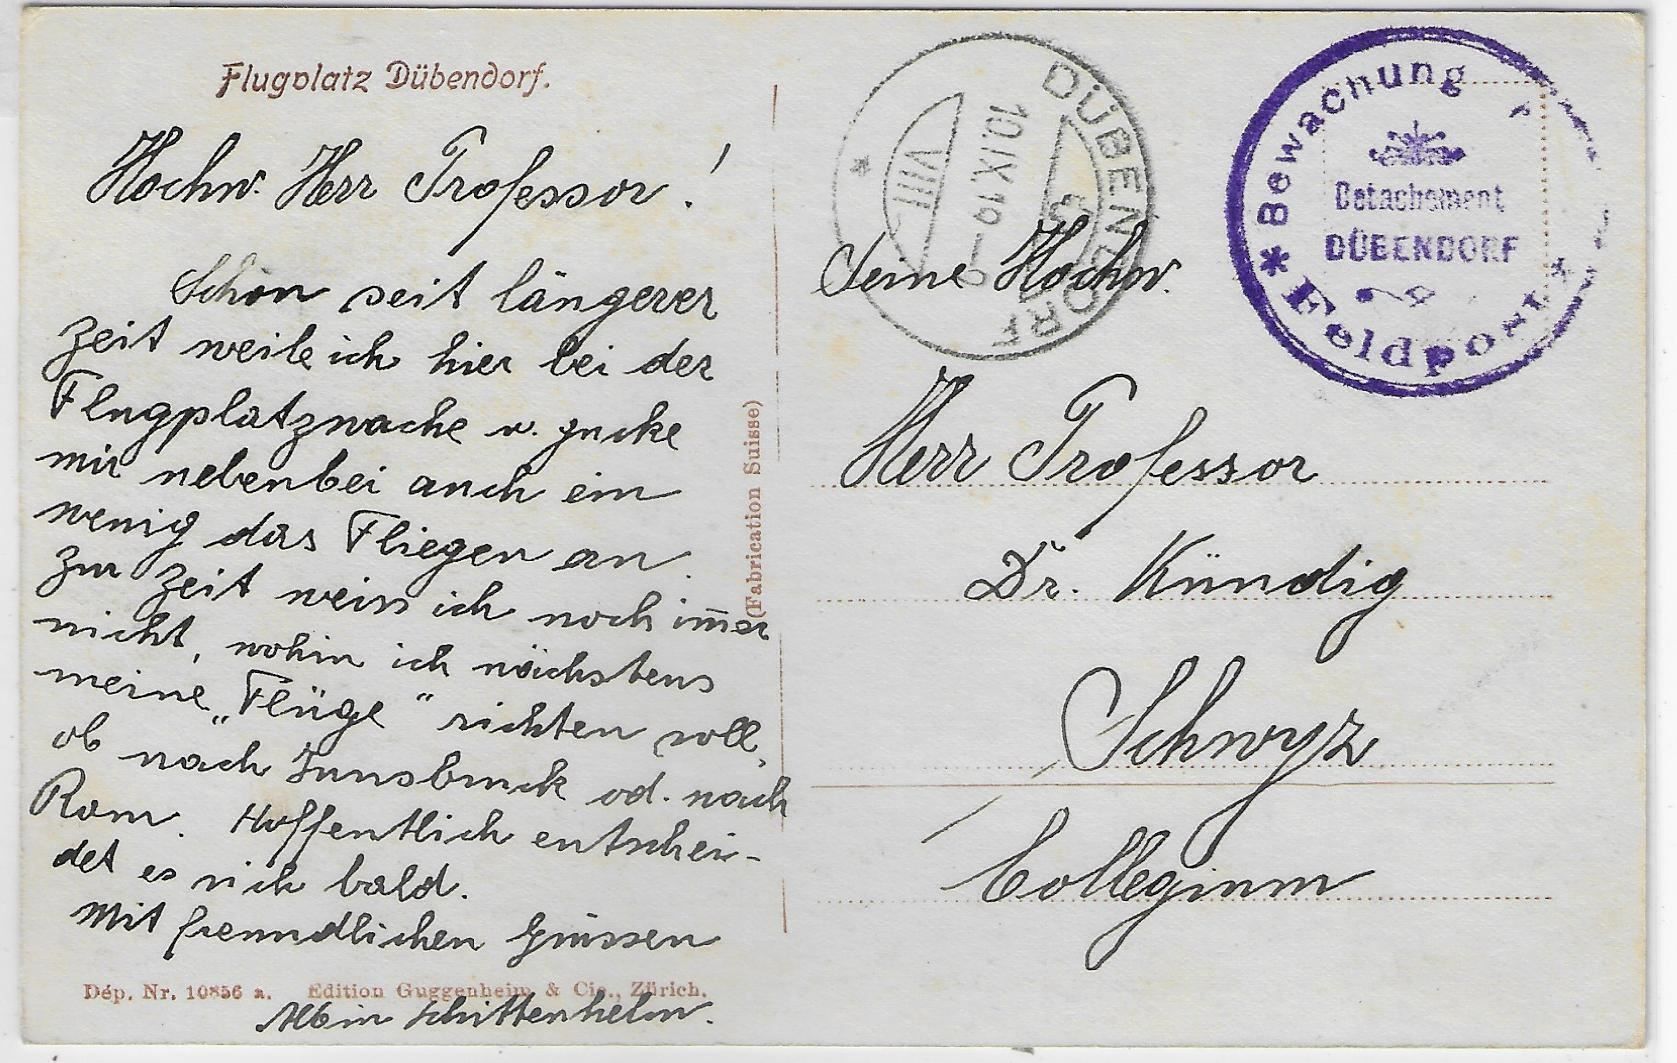 Flugplatz Dübendorf.
Hochw. Herr Professor!
Schon seit längerer
Zeit weile ich hier bei der
Flugplatzwache u. gucke
mir nebenbei auch ein
wenig das Fliegen an.
Zur Zeit weiss ich noch im̅er
nicht, wohin ich nächstens
meine „Flüge" richten soll,
ob nach Innsbruck od. nach
Rom. Hoffentlich entschei-
det es sich bald.
Mit freundlichen Grüssen
Albin Schittenhelm.
Dép. Nr. 10856 a. Edition Guggenheim & Cie., Zürich.
(Fabrication Suisse)
DÜBENDORF
10.IX.19
VIII
* Bewachung
Detachement
DÜBENDORF
* Feldpost *
Seine Hochw.
Herr Professor
Dr. Kündig
Schwyz
Collegium